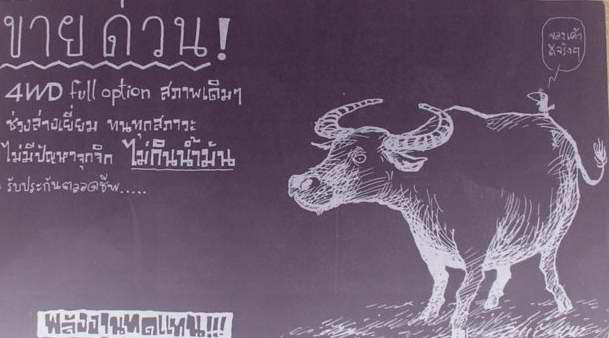 ขายด่วน!
4WD full option สภาพเดิมๆ
ช่วงล่างเยี่ยม ทนทุกสภาวะ
ไม่มีปัญหาจุกจิก ไม่กินน้ำมัน
รับประกันตลอดชีพ.....
ของเค้า
ดีจริงๆ
พลังงานทดแทน!!!